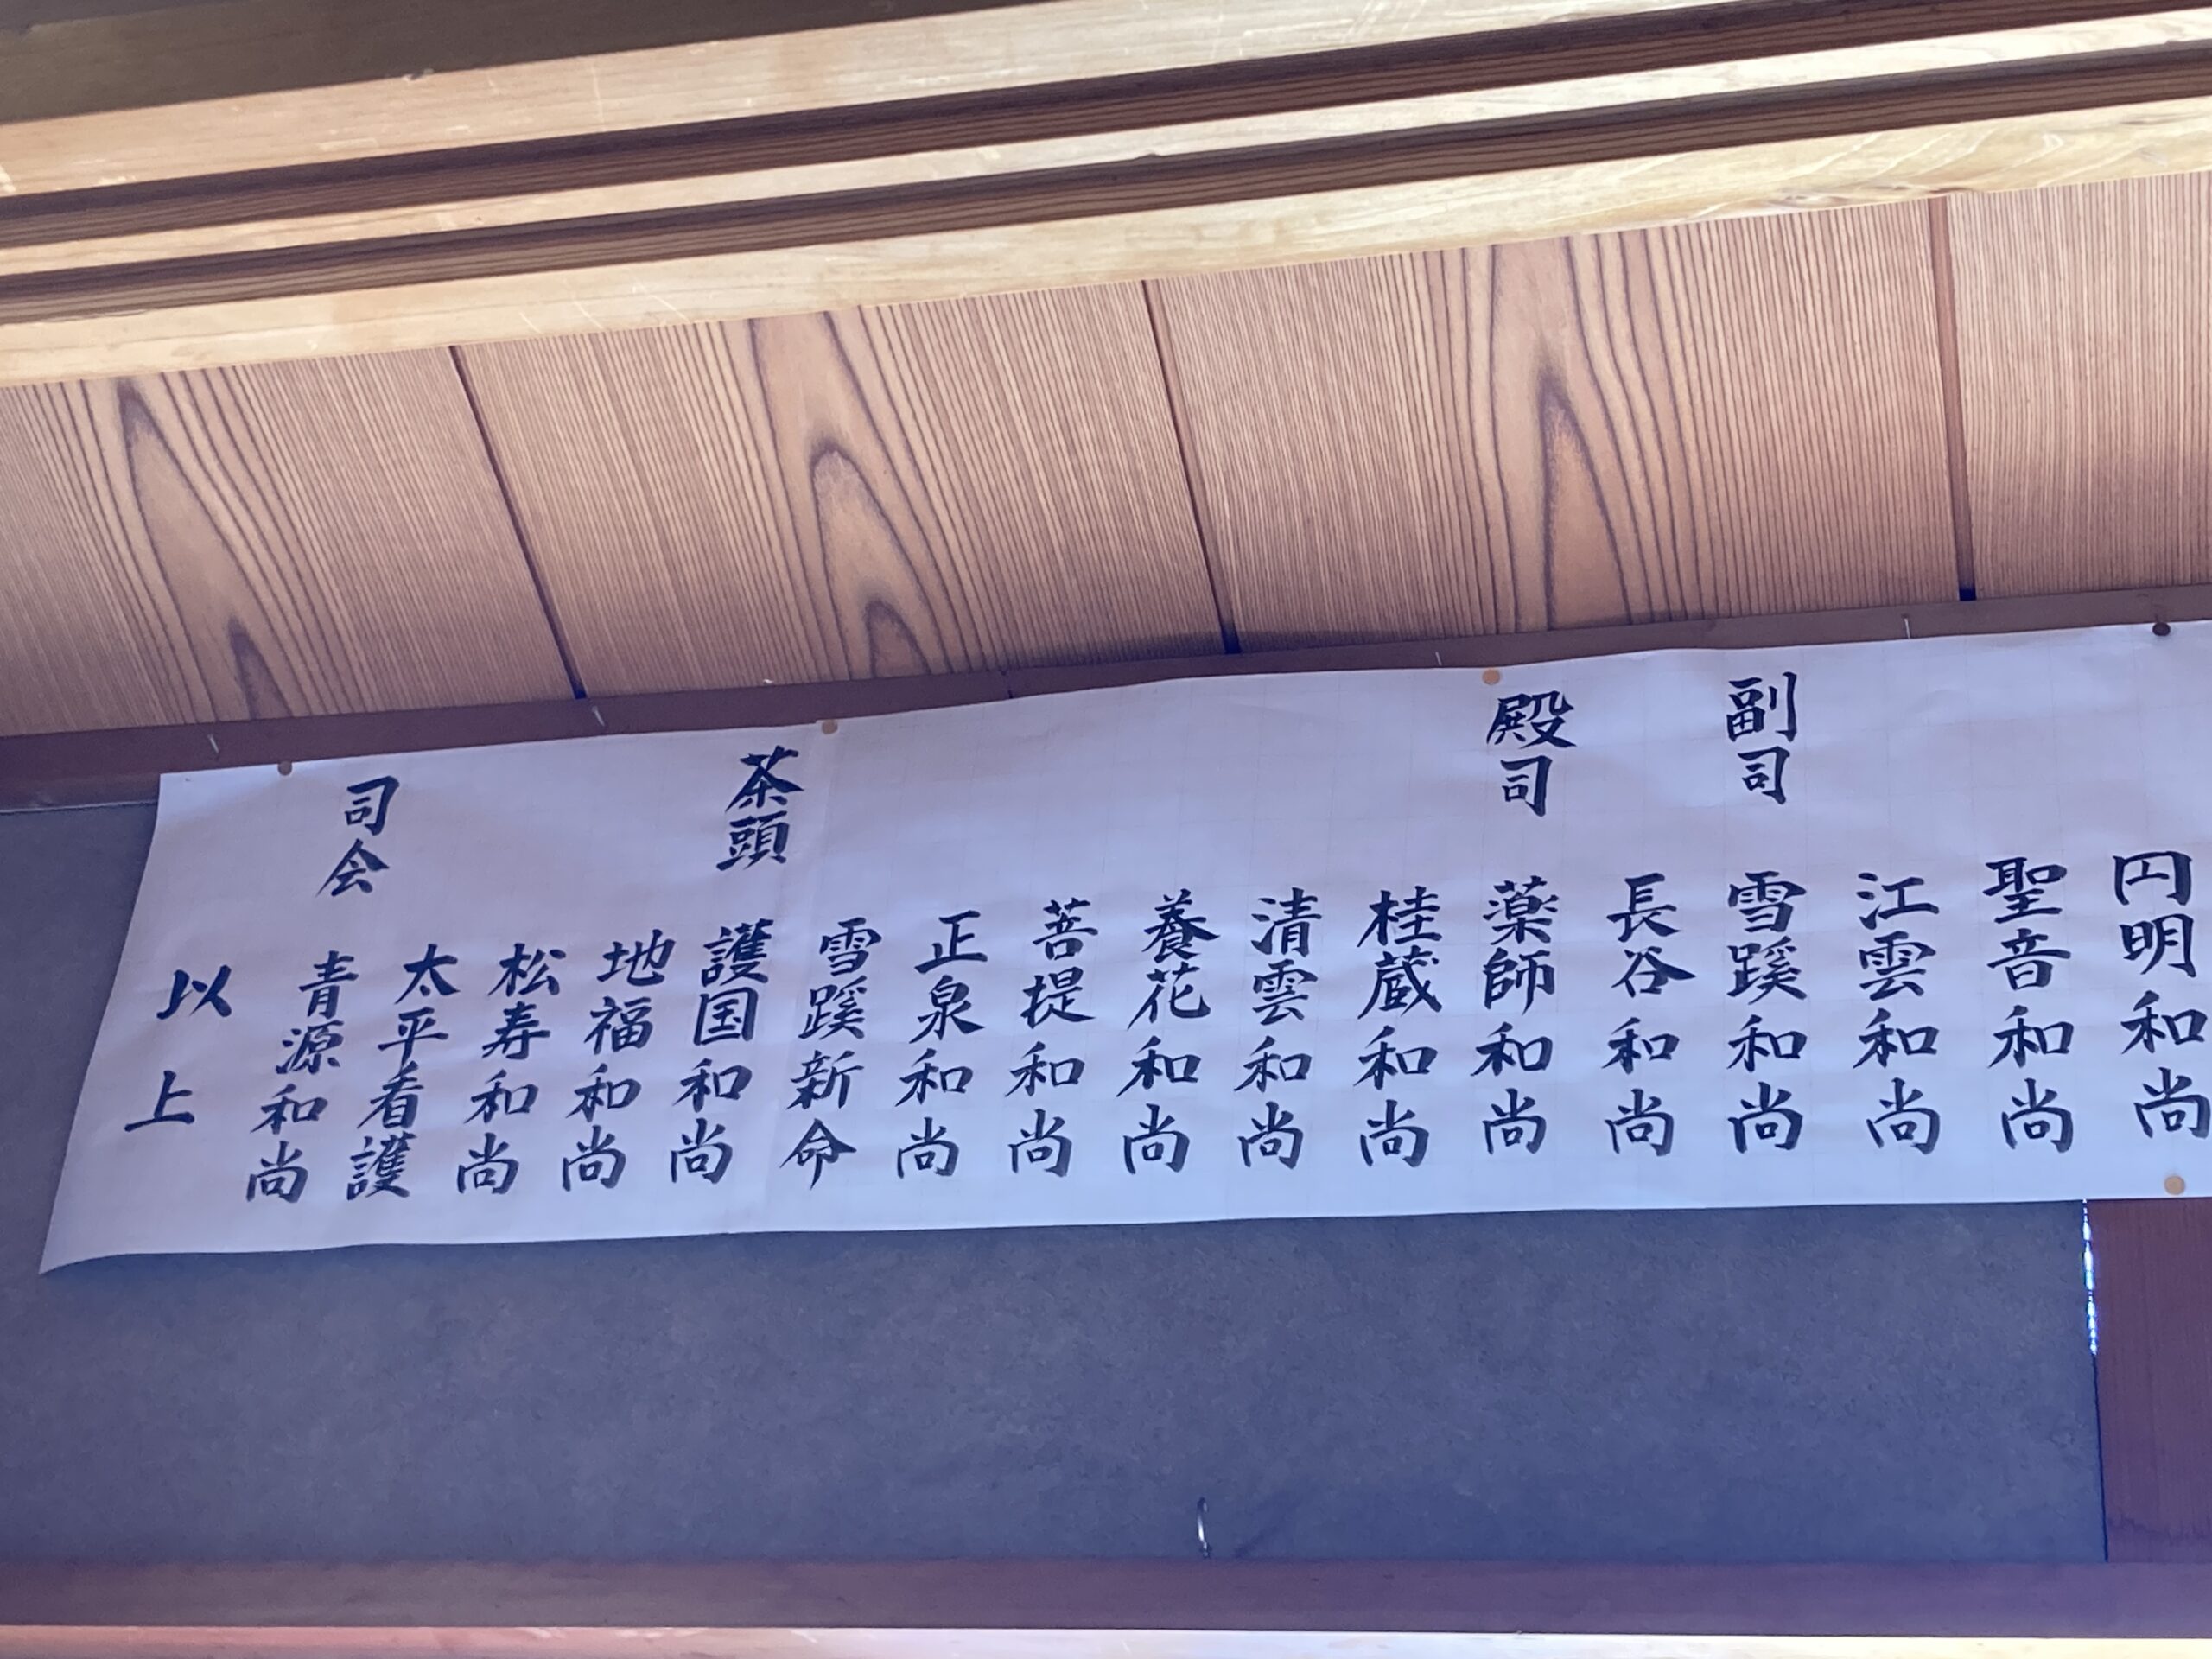 円明和尚
聖音和尚
江雲和尚
副司 雪蹊和尚
長谷和尚
殿司 薬師和尚
桂蔵和尚
清雲和尚
養花和尚
菩提和尚
正泉和尚
雪蹊新命
茶頭 護国和尚
地福和尚
松寿和尚
太平看護
司会 青源和尚
以上